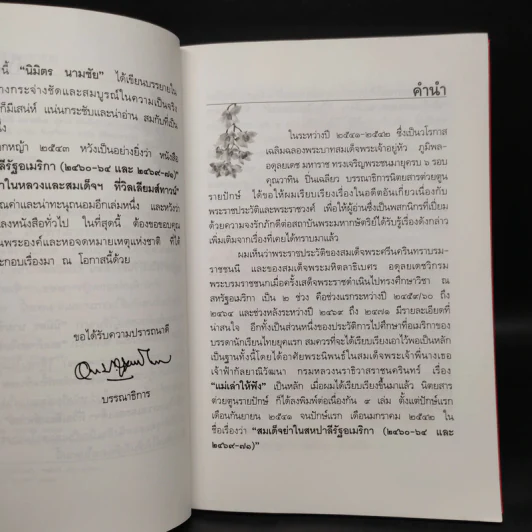 นี้ "นิมิตร นามชัย" ได้เขียนบรรยายใน
างกระจ่างชัดและสมบูรณ์ในความเป็นจริง
ก็มีเสน่ห์ แน่นกระชับและน่าอ่าน สมกับที่เป็น
ง
กหญ้า ๒๕๔๓ หวังเป็นอย่างยิ่งว่า หนังสือ
ลีรัฐอเมริกา (๒๔๖๐-๖๔ และ ๒๔๖๙-๗๑)"
าในหลวงและสมเด็จฯ ที่วิลเลียมส์ทาวน์"
ุณค่าและน่าทะนุถนอมอีกเล่มหนึ่ง และหวังว่า
ลงหนังสือทั่วไป ในที่สุดนี้ ต้องขอขอบคุณ
นพระองค์และหอจดหมายเหตุแห่งชาติ ที่ได้
ะกอบเรื่องมา ณ โอกาสนี้ด้วย
ขอได้รับความปรารถนาดี
บรรณาธิการ
คำนำ
ในระหว่างปี ๒๕๔๑-๒๕๔๒ ซึ่งเป็นวโรกาส
เฉลิมฉลองพระบาทสมเด็จพระเจ้าอยู่หัว ภูมิพล-
อดุลยเดช มหาราช ทรงเจริญพระชนมายุครบ ๖ รอบ
คุณวาทิน ปิ่นเฉลียว บรรณาธิการนิตยสารต่วยตูน
รายปักษ์ ได้ขอให้ผมเรียบเรียงเรื่องในอดีตอันเกี่ยวเนื่องกับ
พระราชประวัติและพระราชวงศ์ เพื่อให้ผู้อ่านซึ่งเป็นพสกนิการที่เปี่ยม
ด้วยความจงรักภักดีต่อสถาบันพระมหากษัตริย์ได้รับรู้เรื่องดังกล่าว
เพิ่มเติมจากเรื่องที่เคยได้ทราบมาแล้ว
ผมเห็นว่าพระราชประวัติของสมเด็จพระศรีนครินทราบรม-
ราชชนนี และของสมเด็จพระมหิตลาธิเบศร อดุลยเดชวิกรม
พระบรมราชชนกเมื่อครั้งเสด็จพระราชดำเนินไปทรงศึกษาวิชา ณ
สหรัฐอเมริกา เป็น ๒ ช่วง คือช่วงแรกระหว่างปี ๒๔๕๙/๖๐ ถึง
๒๔๖๔ และช่วงหลังระหว่างปี ๒๔๖๙ ถึง ๒๔๗๑ มีรายละเอียดที่
น่าสนใจ อีกทั้งเป็นส่วนหนึ่งของประวัติการไปศึกษาที่อเมริกาของ
บรรดานักเรียนไทยยุคแรก สมควรที่จะได้เรียบเรียงเอาไว้พอเป็นหลัก
เป็นฐานทั้งนี้โดยได้อาศัยพระนิพนธ์ในสมเด็จพระเจ้าพี่นางเธอ
เจ้าฟ้ากัลยาณิวัฒนา กรมหลวงนราธิวาสราชนครินทร์ เรื่อง
"แม่เล่าให้ฟัง" เป็นหลัก เมื่อผมได้เรียบเรียงขึ้นมาแล้ว นิตยสาร
ต่วยตูนรายปักษ์ ก็ได้ลงพิมพ์ต่อเนื่องกัน ๙ เล่ม ตั้งแต่ปักษ์แรก
เดือนกันยายน ๒๕๔๑ จนปักษ์แรก เดือนมกราคม ๒๕๔๒ ใน
ชื่อเรื่องว่า "สมเด็จย่าในสหปาลีรัฐอเมริกา (๒๔๖๐-๖๔ และ
๒๔๖๙-๗๑)"